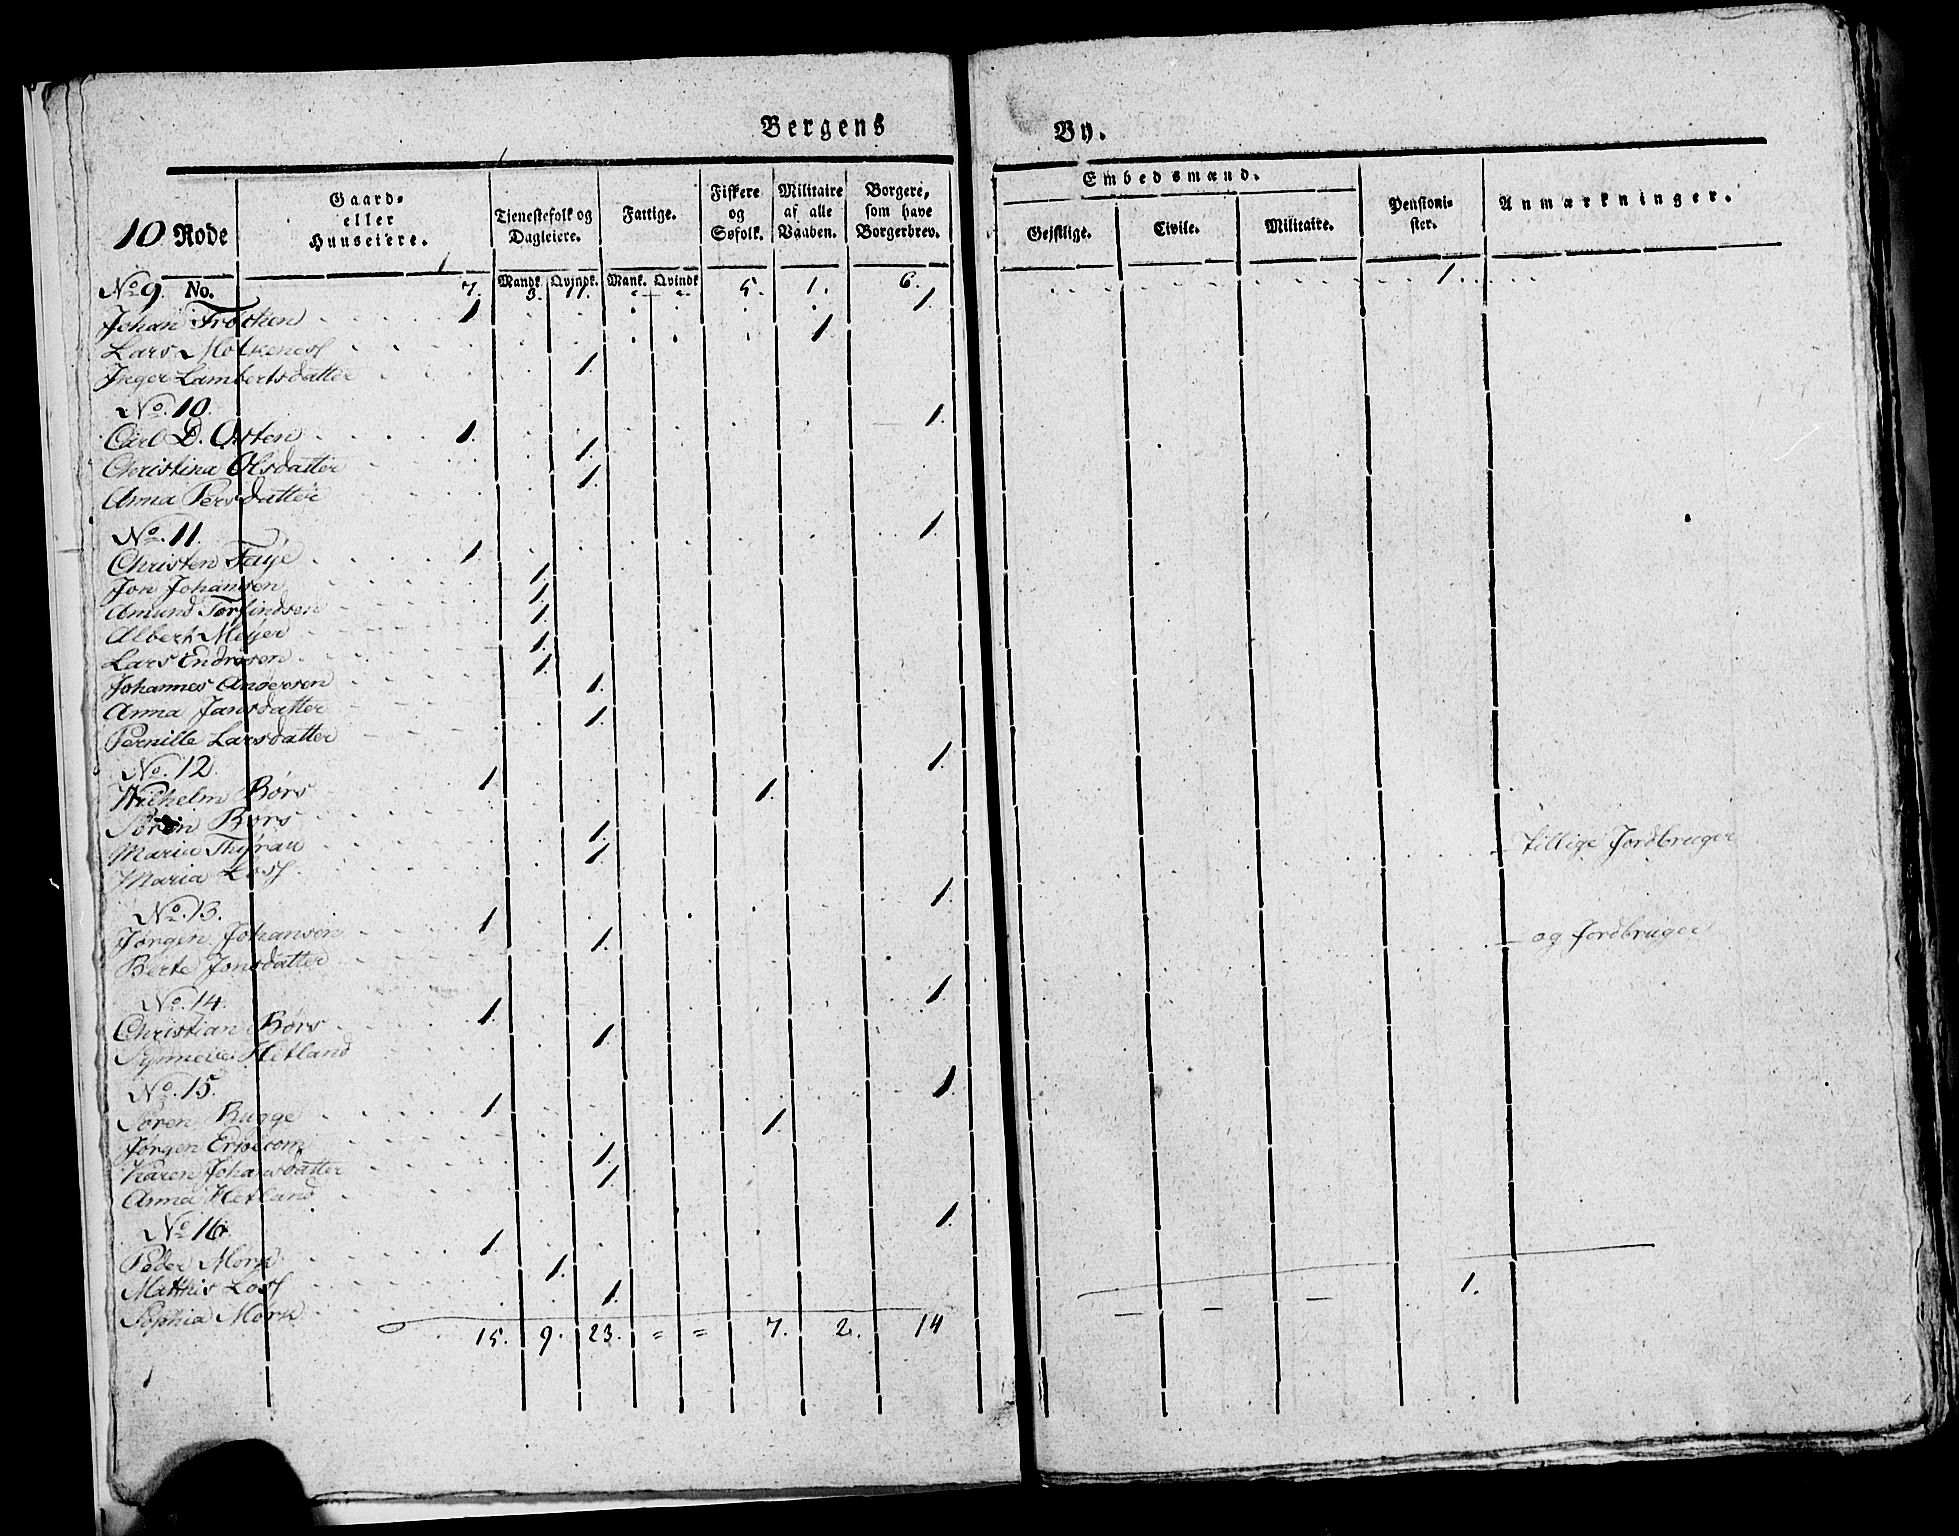 Bergens By.
10 Rode
Gaard- eller Huuseiere.
Tjenestefolk og Dagleiere.
Fattige.
Fiskere og Søfolk.
Militaire af alle Vaaben.
Borgere, som have Borgerbrev.
Embedsmænd.
Gejstlige. Civile. Militaire.
Pensioni- ster.
Anmærkninger.
No. Mandk. Qvindk. Mank. Qvindk
No 9. 7. 3. 11. - - 5. 1. 6. 1.
Johan Trocken 1 1.
Lars Molkenes 1.
Inger Lambertsdatter 1.
No. 10.
Carl D. Osten 1. 1.
Christina Olsdatter 1.
Anna Persdatter 1.
No. 11.
Christen Faije 1. 1.
Jon Johansen 1.
Amund Torfindsen 1.
Albert Meyer 1.
Lars Endresen 1.
Johannes Andersen 1.
Anna Jansdatter 1.
Pernille Larsdatter 1.
No. 12.
Wilhelm Børs 1. 1.
Søren Børs 1.
Maria Thyrau 1.
Maria Loss 1. tillige Jordbruger
No. 13.
Jørgen Johansen 1. 1.
Berte Jonsdatter 1. og Jordbruger
No. 14.
Christian Børs 1. 1.
Synneve Hetland 1.
No. 15.
Søren Bugge 1. 1.
Jørgen Erpecom 1.
Karen Johansdatter 1.
Anna Hetland 1.
No 16.
Peder Mork 1. 1.
Matthis Loss 1.
Sophia Mork 1.
15. 9. 23. = = 7. 2. 14 — — — 1.